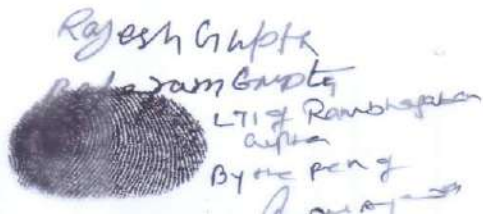 Rajesh Gupta
Gupta
LTI of Rambhajan
Gupta
By the pen of